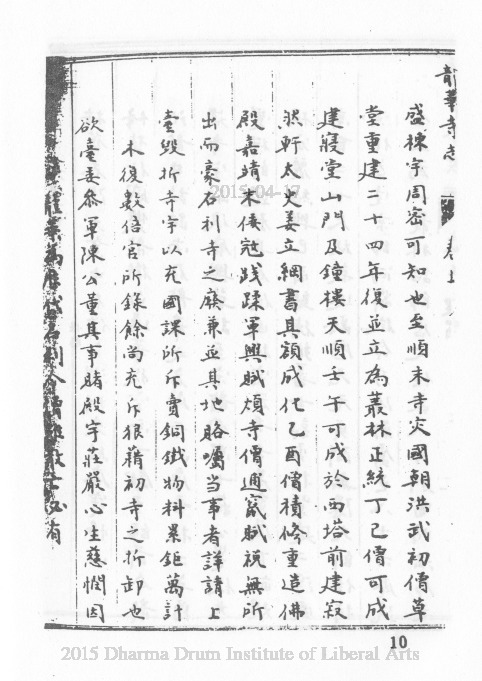 龍華寺志 卷上
盛棟宇周密可知也至順末寺灾國朝洪武初僧草
堂重建二十四年復並立為叢林正統丁巳僧可成
建寢堂山門及鐘樓天順壬午可成於西塔前建寂
然軒太史姜立綱書其額成化乙酉僧積修重造佛
殿嘉靖末倭冦踐蹂軍興賦煩寺僧逋竄賦稅無所
出而豪右利寺之廢兼並其地賂囑當事者詳請上
臺毀折寺宇以充國課所斥賣銅鐵物料累鉅萬計
木復數倍官所錄餘尚充斥狠藉初寺之折卸也
欲臺委叅軍陳公董其事睹殿宇莊嚴心生慈憫因
2015-04-17
10
2015 Dharma Drum Institute of Liberal Arts